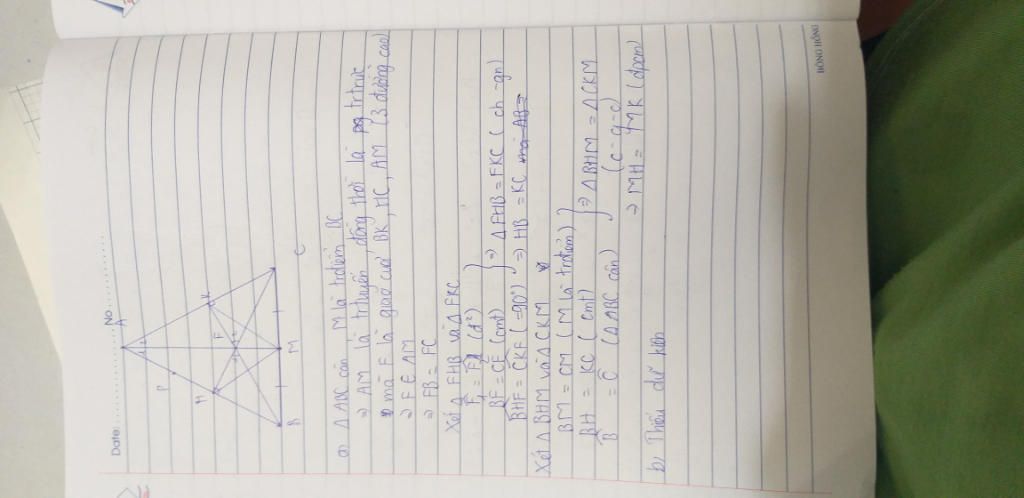 Date: No
A
P
H
K
F
B
M
C
a) Δ ABC cân, M là trđiểm BC
⇒ AM là trtuyến đồng thời là trtrực
mà F là giao của BK, HC, AM (3 đường cao)
⇒ F ∈ AM
⇒ FB = FC
Xét Δ FHB và Δ FKC
(đ²)
BF = CF (cmt)
BHF = CKF (=90°)
⇒ Δ FHB = FKC (ch - gn)
⇒ HB = KC mà AB =
Xét Δ BHM và Δ CKM
BM = CM (M là trđiểm)
BH = KC (cmt)
B̂ = Ĉ (Δ ABC cân)
⇒ Δ BHM = Δ CKM
(c - g - c)
⇒ MH = MK (đpcm)
b) Thiếu dữ kiện
HỒNG